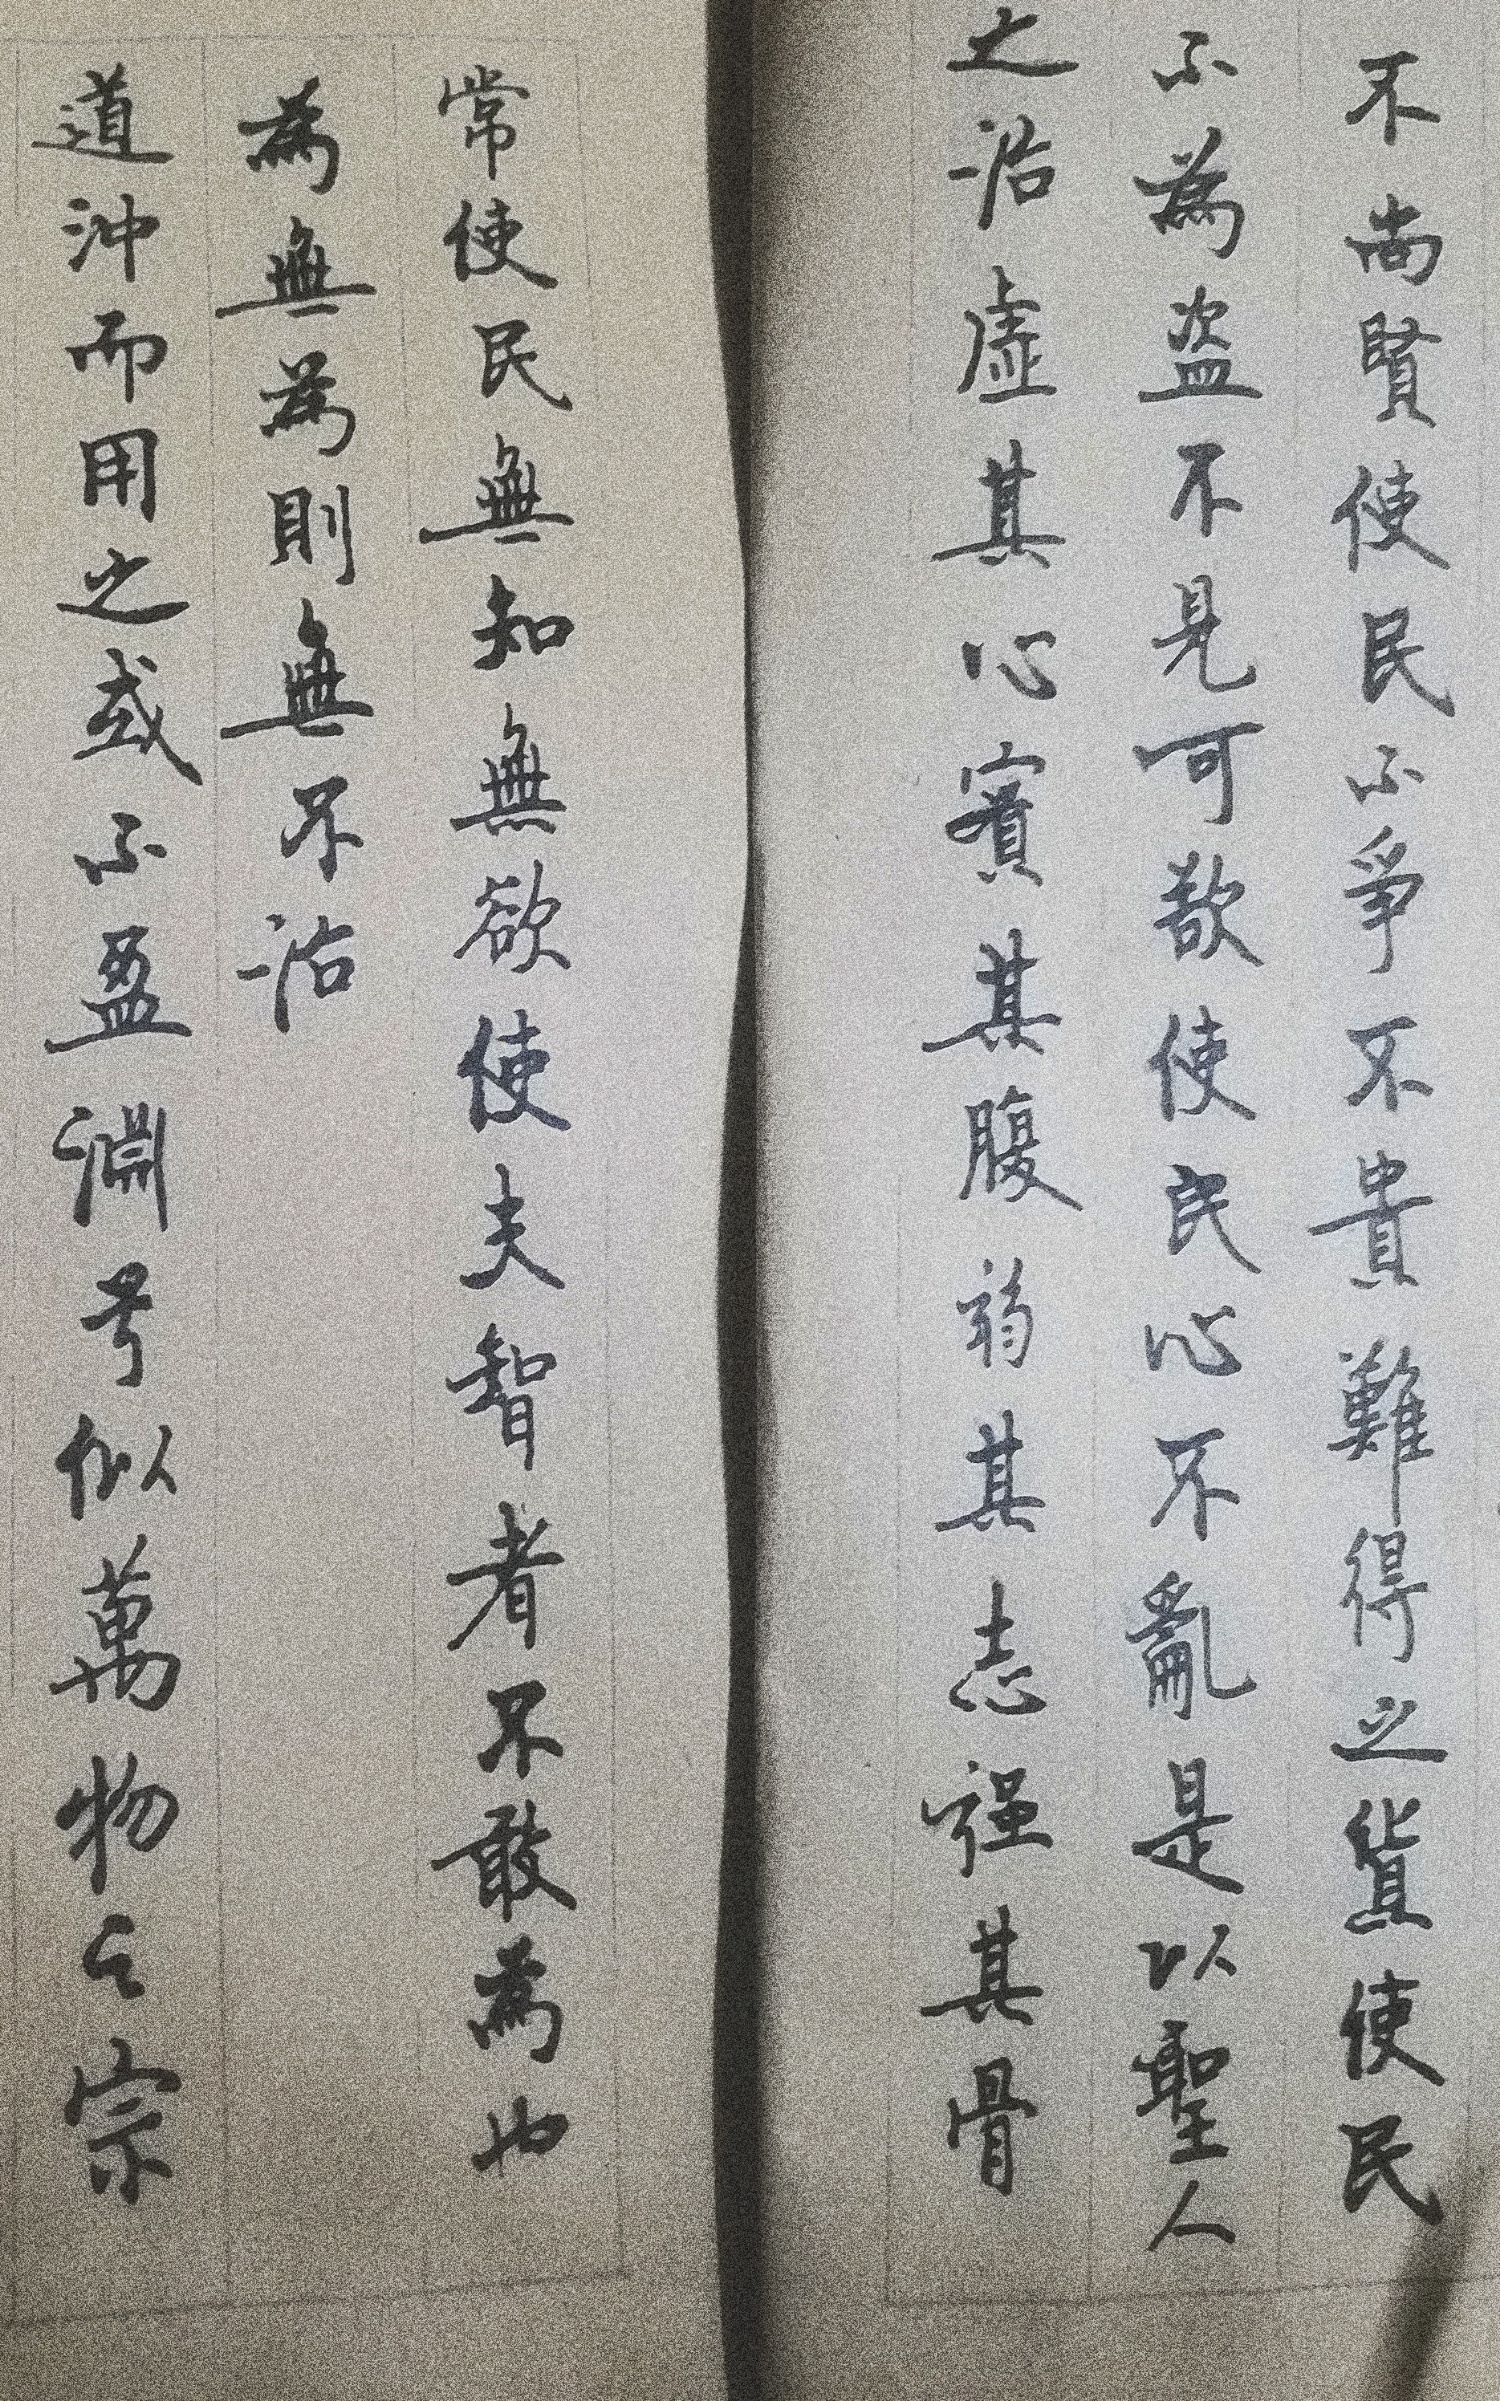 不尚賢使民不爭不貴難得之貨使民
不為盜不見可欲使民心不亂是以聖人
之治虛其心實其腹弱其志强其骨
常使民無知無欲使夫智者不敢為也
為無為則無不治
道沖而用之或不盈淵兮似萬物之宗